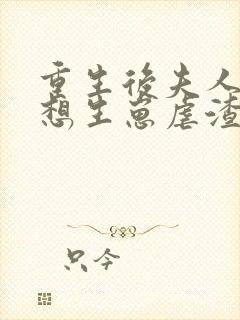 重生後夫人只
想生崽虐渣
只今